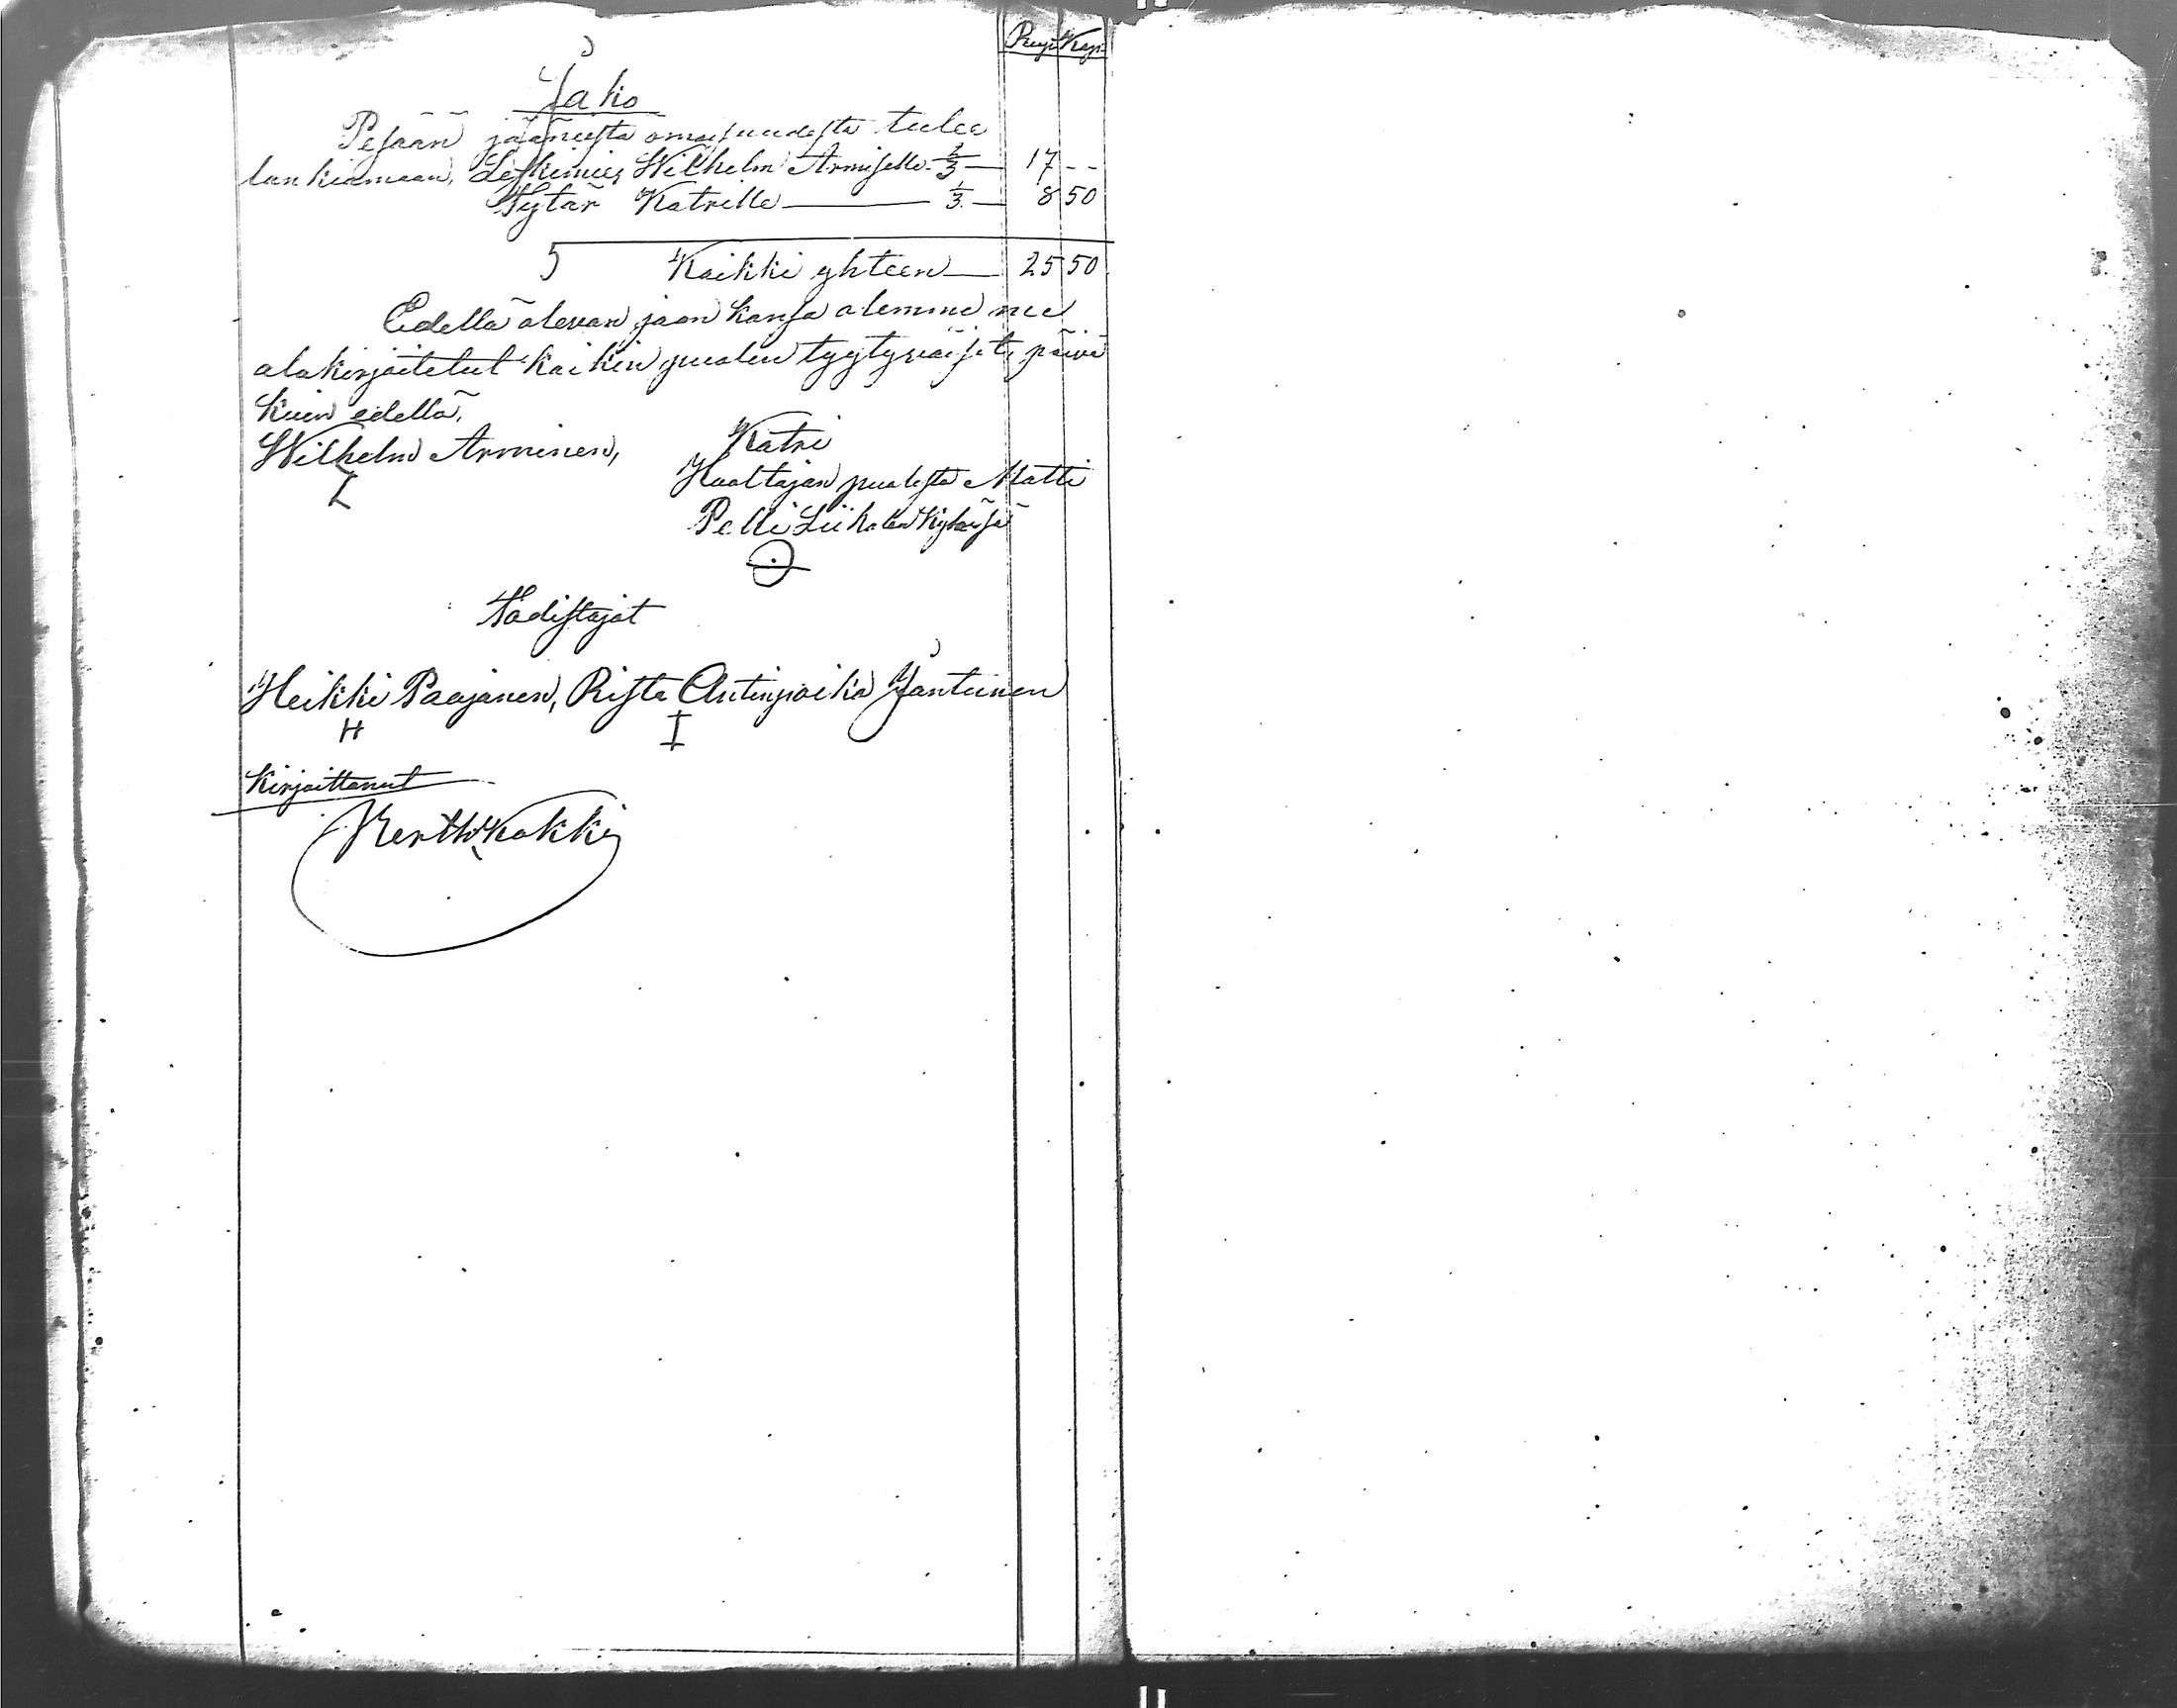 Rupl Kop
Jako
Pesään jääneistä omaisuudesta tulee
lankiamaan, Leskimies Wilhelm Armiselle 2/3 — 17 --
Tytär Katrille — 1/3 — 8 50
Kaikki yhteen — 25 50
Edellä olevan jaon kansa olemme me
alakirjoitetut kaikin puolen tyytyväiset, päivä
kuin edellä.
Wilhelm Arminen, Katri
Huoltajan puolesta Matti
Pelli Liikalan kylässä
Todistajat
Heikki Paajanen, Risto Antinpoika Jantunen
H I
Kirjoittanut